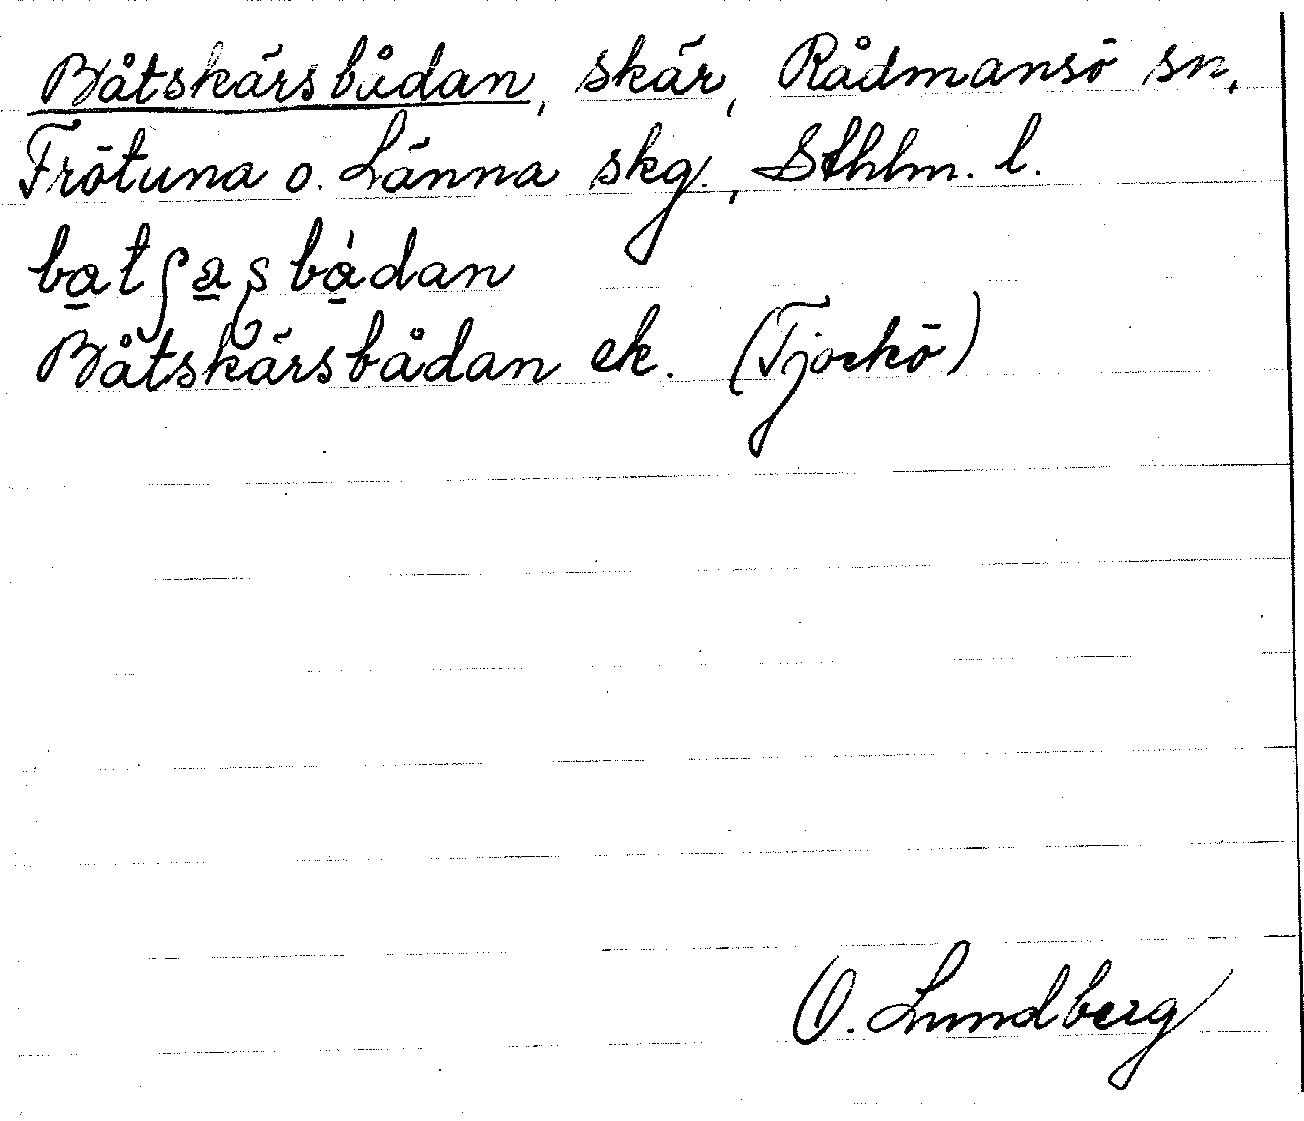 Båtskärsbådan, skär, Rådmansö sn,
Frötuna o. Länna skg., Sthlm. l.
Båtskärsbådan ek. (Tjockö)
O. Lundberg